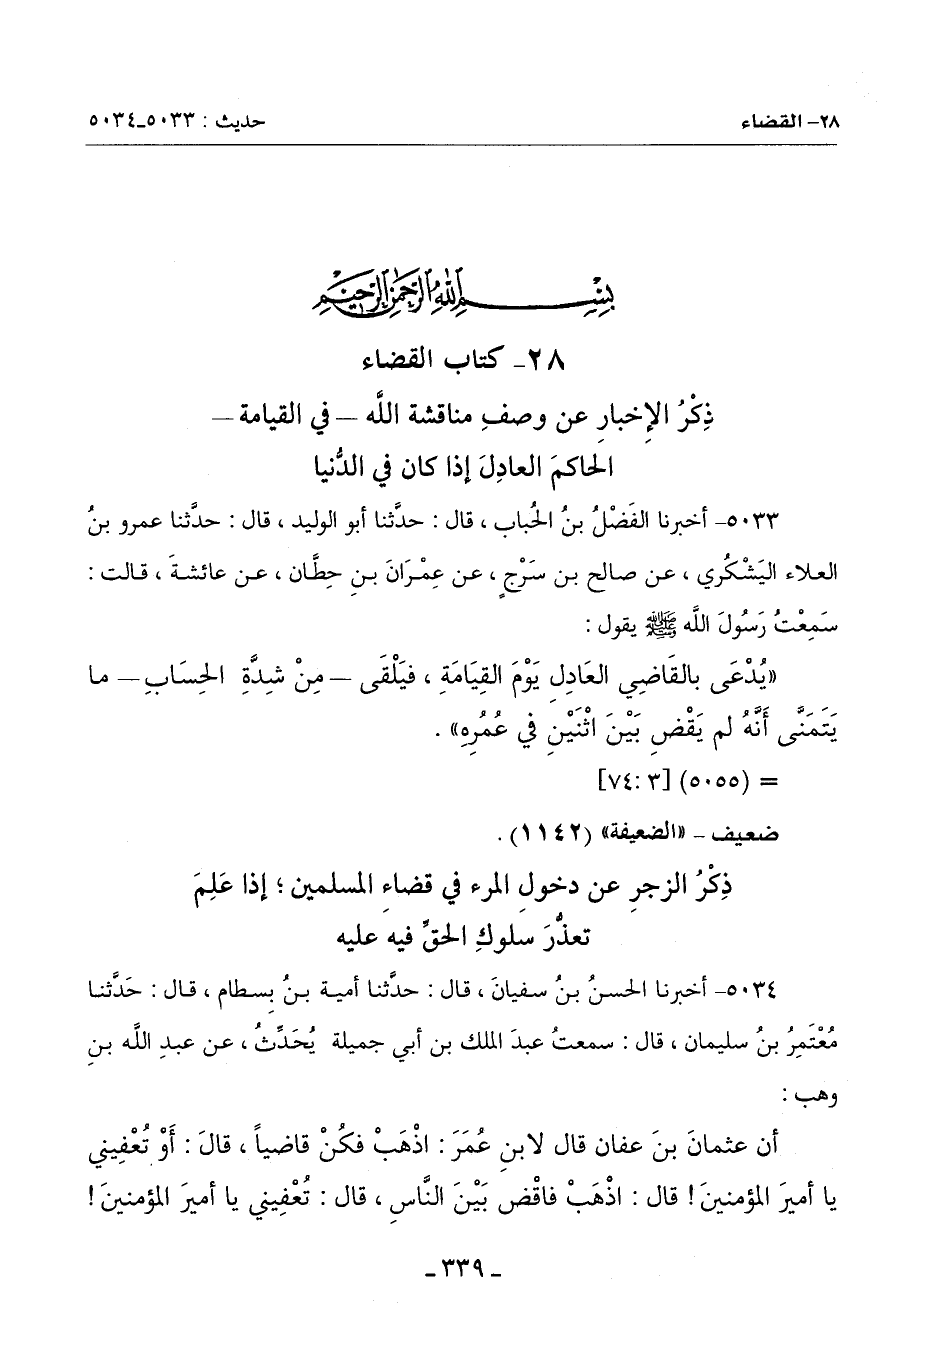 ٢٨- القضاء
حديث : ٥٠٣٣-٥٠٣٤
بِسْمِ اللَّهِ الرَّحْمَنِ الرَّحِيمِ
٢٨- كتاب القضاء
ذِكْرُ الإخبارِ عن وصفِ مناقشة اللَّه – في القيامة –
الحاكمَ العادِلَ إذا كان في الدُّنيا
٥٠٣٣- أخبرنا الفَضْلُ بنُ الحُباب ، قال : حدَّثنا أبو الوليد ، قال : حدَّثنا عمرو بنُ
العلاء اليَشْكُري ، عن صالح بن سَرْجٍ ، عن عِمْرَانَ بنِ حِطَّان ، عن عائشةَ ، قالت :
سَمِعْتُ رَسُولَ اللَّه ﷺ يقول :
«يُدْعَى بالقَاضِي العَادِلِ يَوْمَ القِيَامَةِ ، فيَلْقَى – مِنْ شِدَّةِ الحِسَابِ – ما
يَتَمَنَّى أَنَّهُ لم يَقْضِ بَيْنَ اثْنَيْنِ في عُمُرِهِ» .
= (٥٠٥٥) [٣ :٧٤]
ضعيف - «الضعيفة» (١١٤٢) .
ذِكْرُ الزجرِ عن دخول المرء في قضاء المسلمين ؛ إذا عَلِمَ
تعذُّرَ سلوكِ الحقِّ فيه عليه
٥٠٣٤- أخبرنا الحسنُ بنُ سفيانَ ، قال : حدَّثنا أمية بنُ بِسطام ، قال : حَدَّثنا
مُعْتَمِرُ بنُ سليمان ، قال : سمعتُ عبدَ الملك بن أبي جميلة يُحَدِّثُ ، عن عبدِ اللَّه بنِ
وهب :
أن عثمانَ بنَ عفان قال لابنِ عُمَرَ : اذْهَبْ فكُنْ قاضياً ، قالَ : أَوْ تُعْفِيني
يا أميرَ المؤمنينَ! قال : اذْهَبْ فاقْضِ بَيْنَ النَّاسِ ، قال : تُعْفِيني يا أميرَ المؤمنينَ!
- ٣٣٩ -